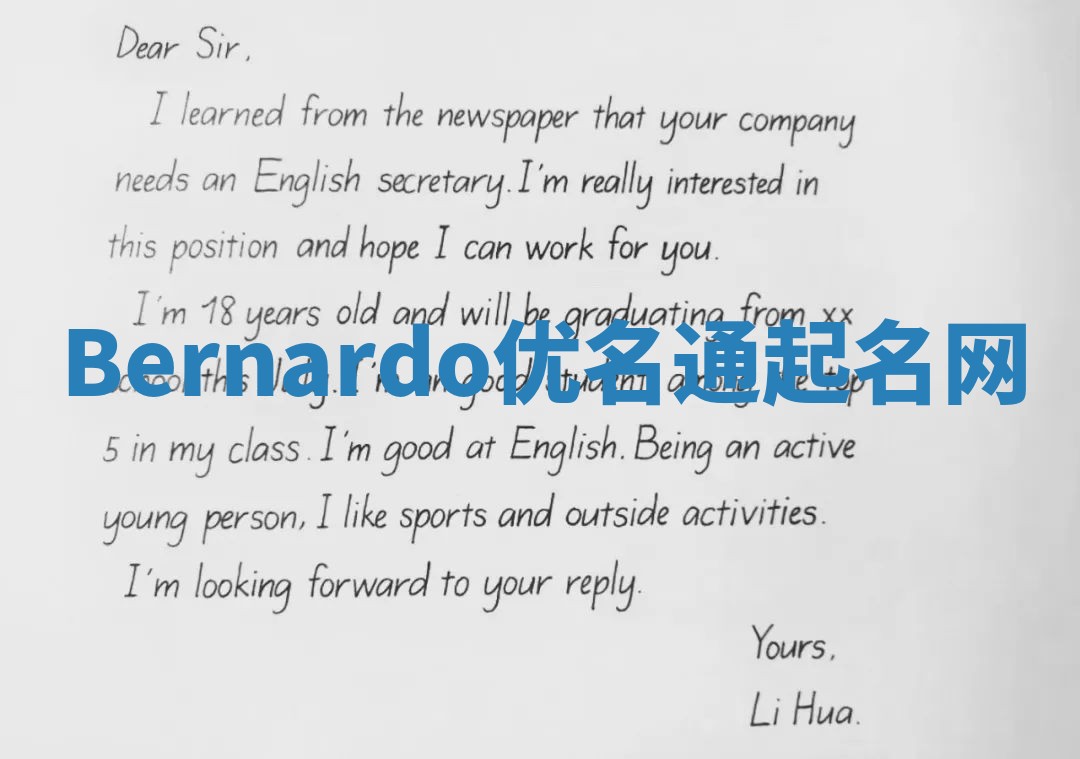 Dear Sir,
I learned from the newspaper that your company
needs an English secretary. I'm really interested in
this position and hope I can work for you.
I'm 18 years old and will be graduating from xx
Bernardo优名通起名网
school this July. I'm an good student among the top
5 in my class. I'm good at English. Being an active
young person, I like sports and outside activities.
I'm looking forward to your reply.
Yours,
Li Hua.